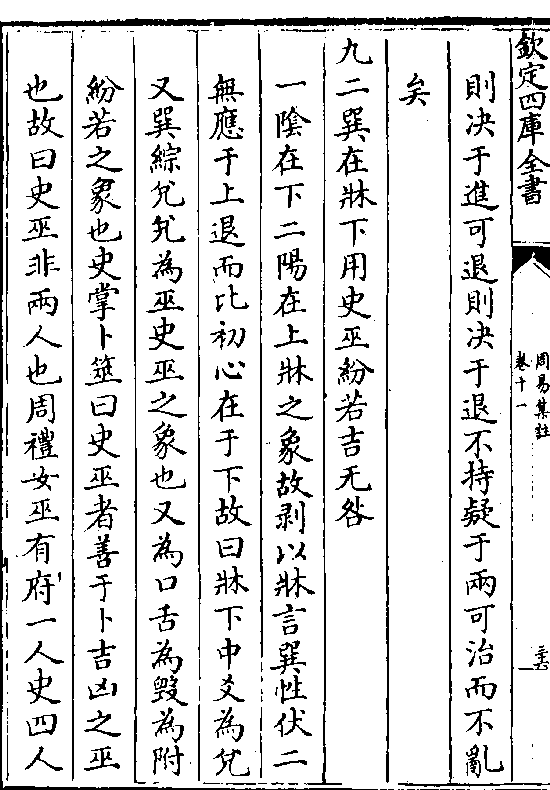 欽定四庫全書
周易集註
卷十一
則決于進可退則決于退不持疑于兩可治而不亂
矣
九二巽在牀下用史巫紛若吉无咎
一陰在下二陽在上牀之象故剥以牀言巽性伏二
無應于上退而比初心在于下故曰牀下中爻為兌
又巽綜兌兌為巫史巫之象也又為口舌為毀為附
紛若之象也史掌卜筮曰史巫者善于卜吉凶之巫
也故曰史巫非兩人也周禮女巫有府一人史四人